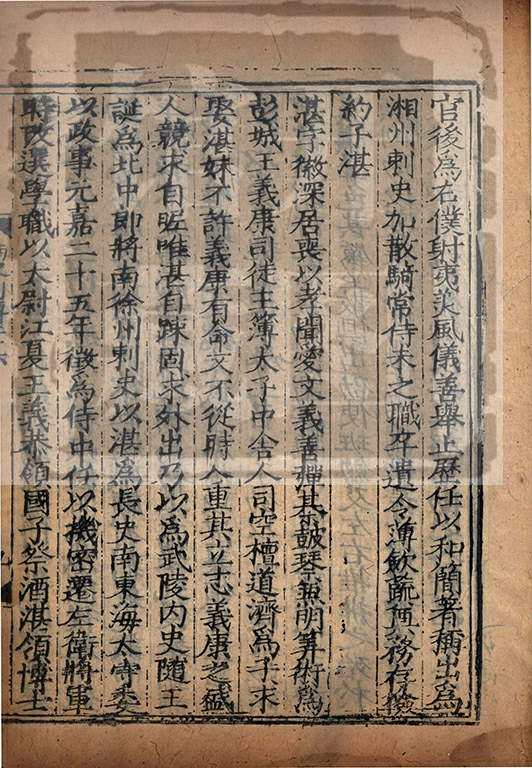 官後爲右僕射夷美風儀善舉止歷任以和簡著稱出爲
湘州刺史加散騎常侍未之職卒遺令薄斂蔬奠務存儉
約子湛
湛字徽深居喪以孝聞愛文義善彈棊鼓琴兼明算術爲
彭城王義康司徒主簿太子中舍人司空檀道濟爲子求
娶湛妹不許義康有命又不從時人重其立志義康之盛
人競求自昵唯湛自疎固求外出乃以爲武陵內史隨王
誕爲北中郎將南徐州刺史以湛爲長史南東海太守委
以政事元嘉二十五年徵爲侍中任以機密遷左衛將軍
時改選學職以太尉江夏王義恭領國子祭酒湛領博士